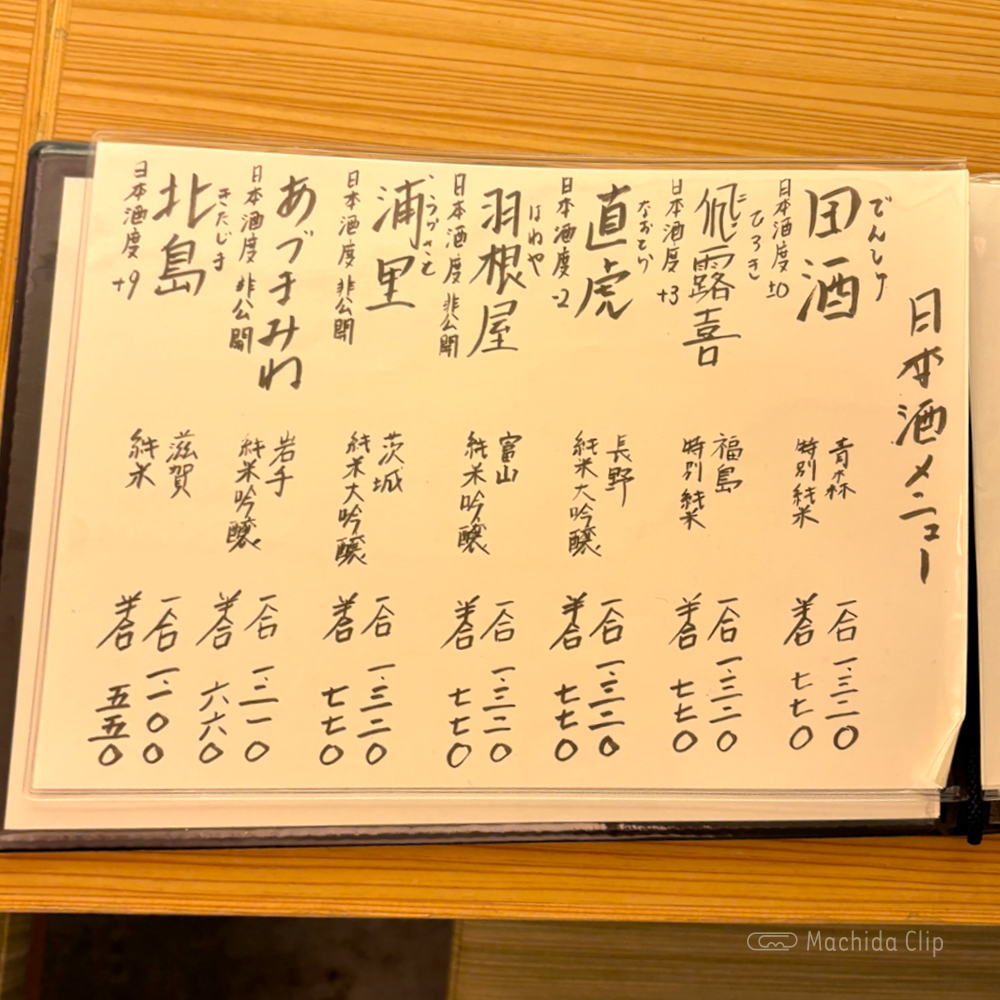 日本酒メニュー
でんしゅ
田酒
日本酒度 ±0
青森
特別純米
一合 一、三二〇
半合 七七〇
ひろき
飛露喜
日本酒度 +3
福島
特別純米
一合 一、三二〇
半合 七七〇
なおとら
直虎
日本酒度 -2
長野
純米大吟醸
一合 一、三二〇
半合 七七〇
はねや
羽根屋
日本酒度 非公開
富山
純米吟醸
一合 一、三二〇
半合 七七〇
うらざと
浦里
日本酒度 非公開
茨城
純米大吟醸
一合 一、三二〇
半合 七七〇
あづまみね
日本酒度 非公開
岩手
純米吟醸
一合 一、二一〇
半合 六六〇
きたじま
北島
日本酒度 +9
滋賀
純米
一合 一、一〇〇
半合 五五〇
Machida Clip